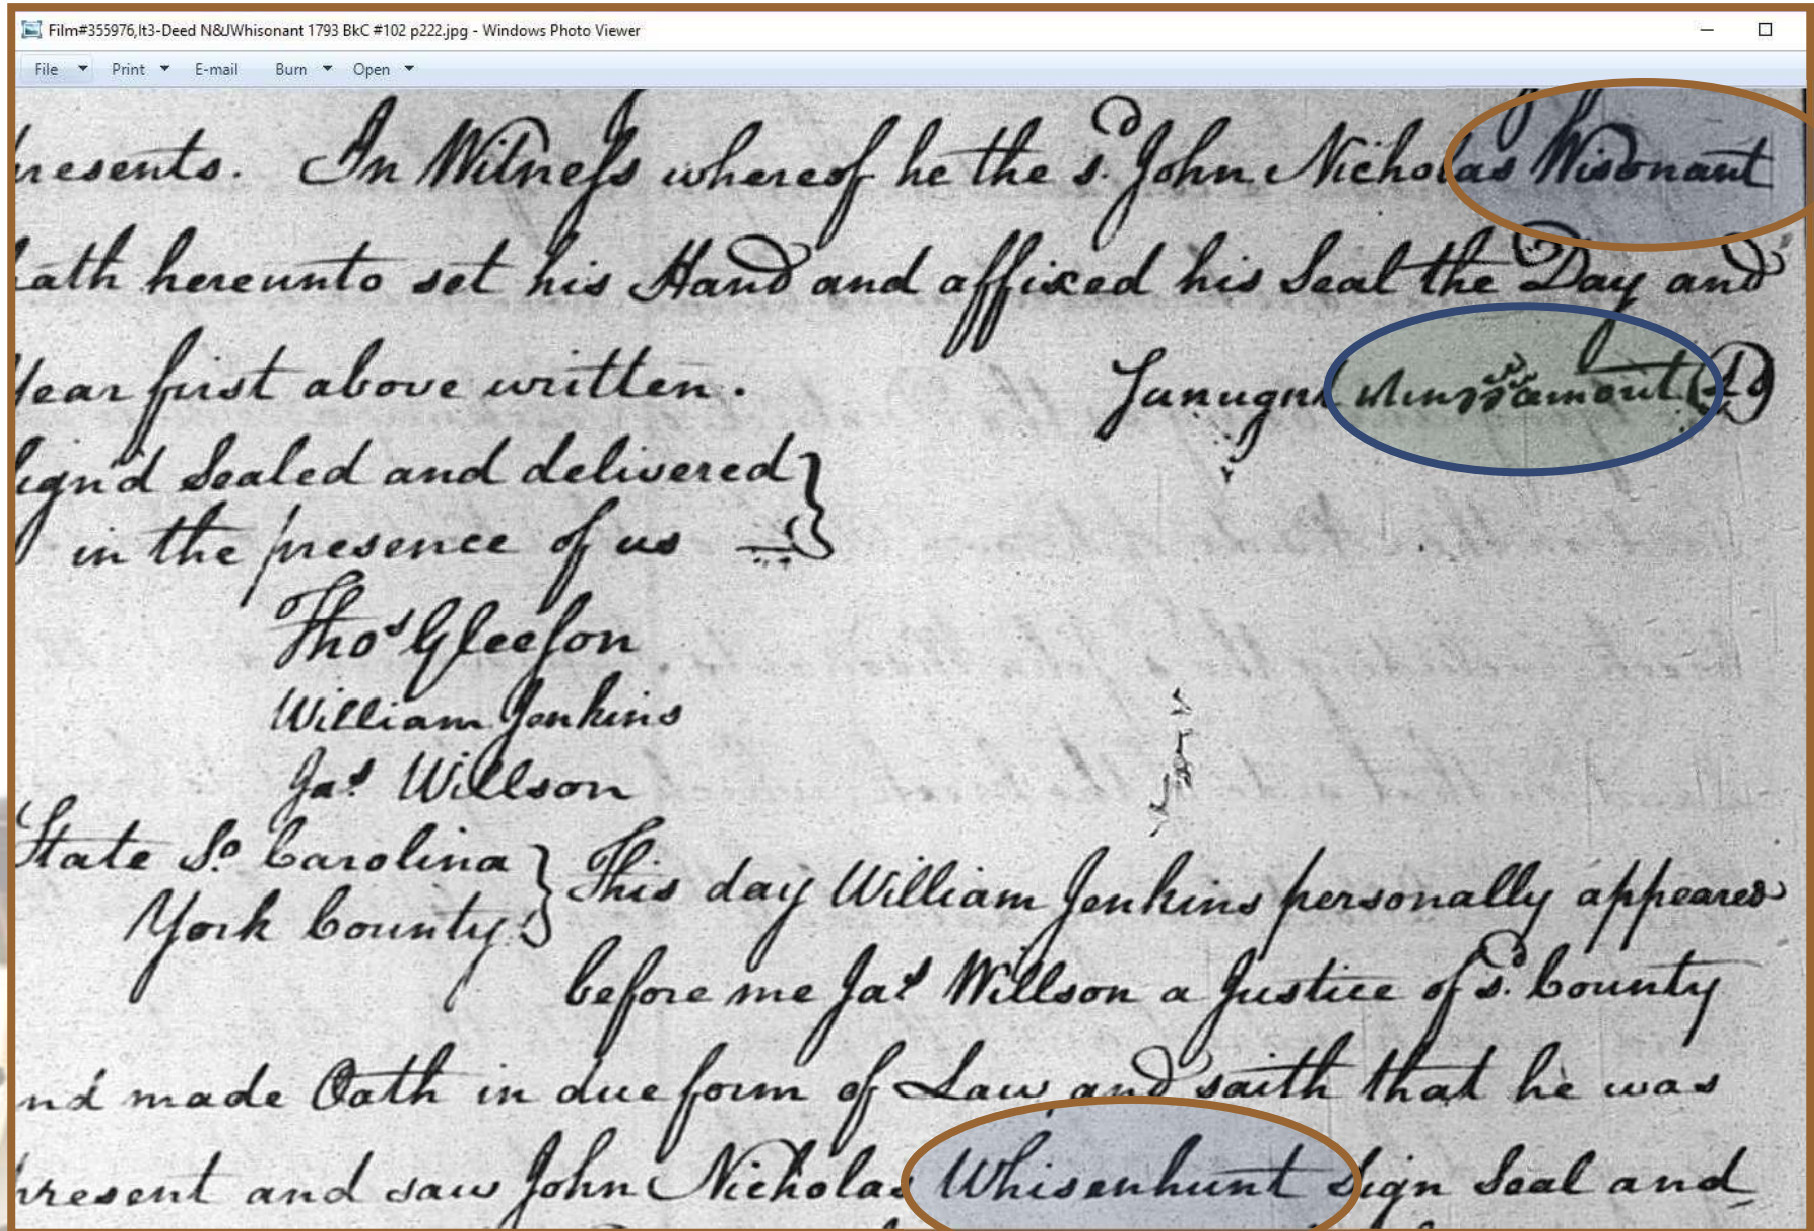 Film#355976,It3-Deed N&JWhisonant 1793 BkC #102 p222.jpg - Windows Photo Viewer
File Print E-mail Burn Open
presents. In Witness whereof he the sd. John Nicholas Wisonant
hath hereunto set his Hand and affixed his Seal the Day and
Year first above written.
Signd Sealed and delivered
in the presence of us
Thos Gleeson
William Jenkins
Jas Willson
State So. Carolina
York County
This day William Jenkins personally appeared
before me Jas Willson a Justice of sd. County
and made Oath in due form of Law and saith that he was
present and saw John Nicholas Whisenhunt Sign Seal and